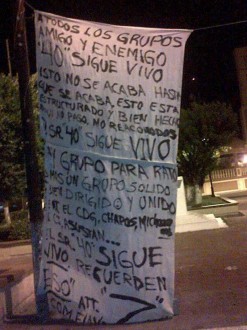 A TODOS LOS GRUPOS
AMIGO Y ENEMIGO
"40" SIGUE VIVO
ESTO NO SE ACABA HASTA
QUE SE ACABA, ESTO ESTA
ESTRUCTURADO Y BIEN HECHO
PASO, NO
SR "40" SIGUE VIVO
GRUPO PARA RATO
UN GRUPO SOLIDO
DIRIGIDO Y UNIDO
EL CDG, CHAPOS,
SR "40" SIGUE
VIVO RECUERDEN
ESO" ATT.
"Z"